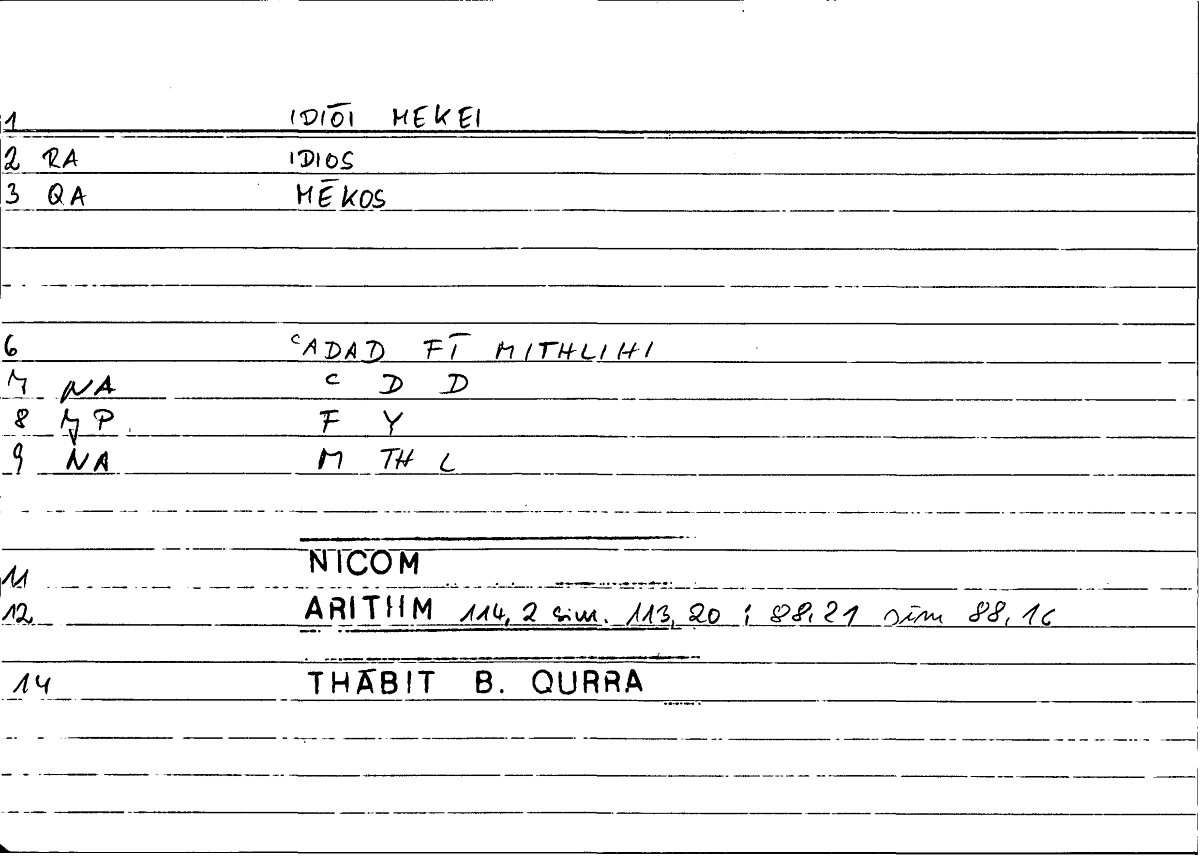 1 IDIŌI MEKEI
2 RA IDIOS
3 QA MĒKOS
6 ᶜADAD FĪ MITHLIHI
7 NA ᶜ D D
8 P F Y
9 NA M TH L
11 NICOM
12 ARITHM 114, 2 sim. 113, 20 ; 88,21 sim 88, 16
14 THĀBIT B. QURRA